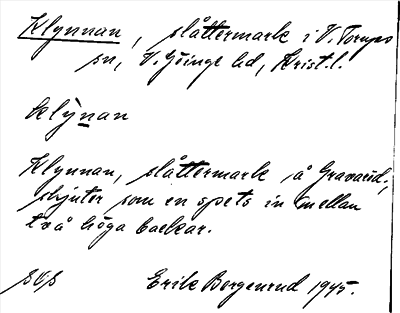 Klynnan, slåttermark i V. Torups
sn, V. Göinge hd, Krist. l.
klỳnan
Klynnan, slåttermark å Gravaröd,
skjuter som en spets in mellan
två höga backar.
Erik Borgenrud 1945.